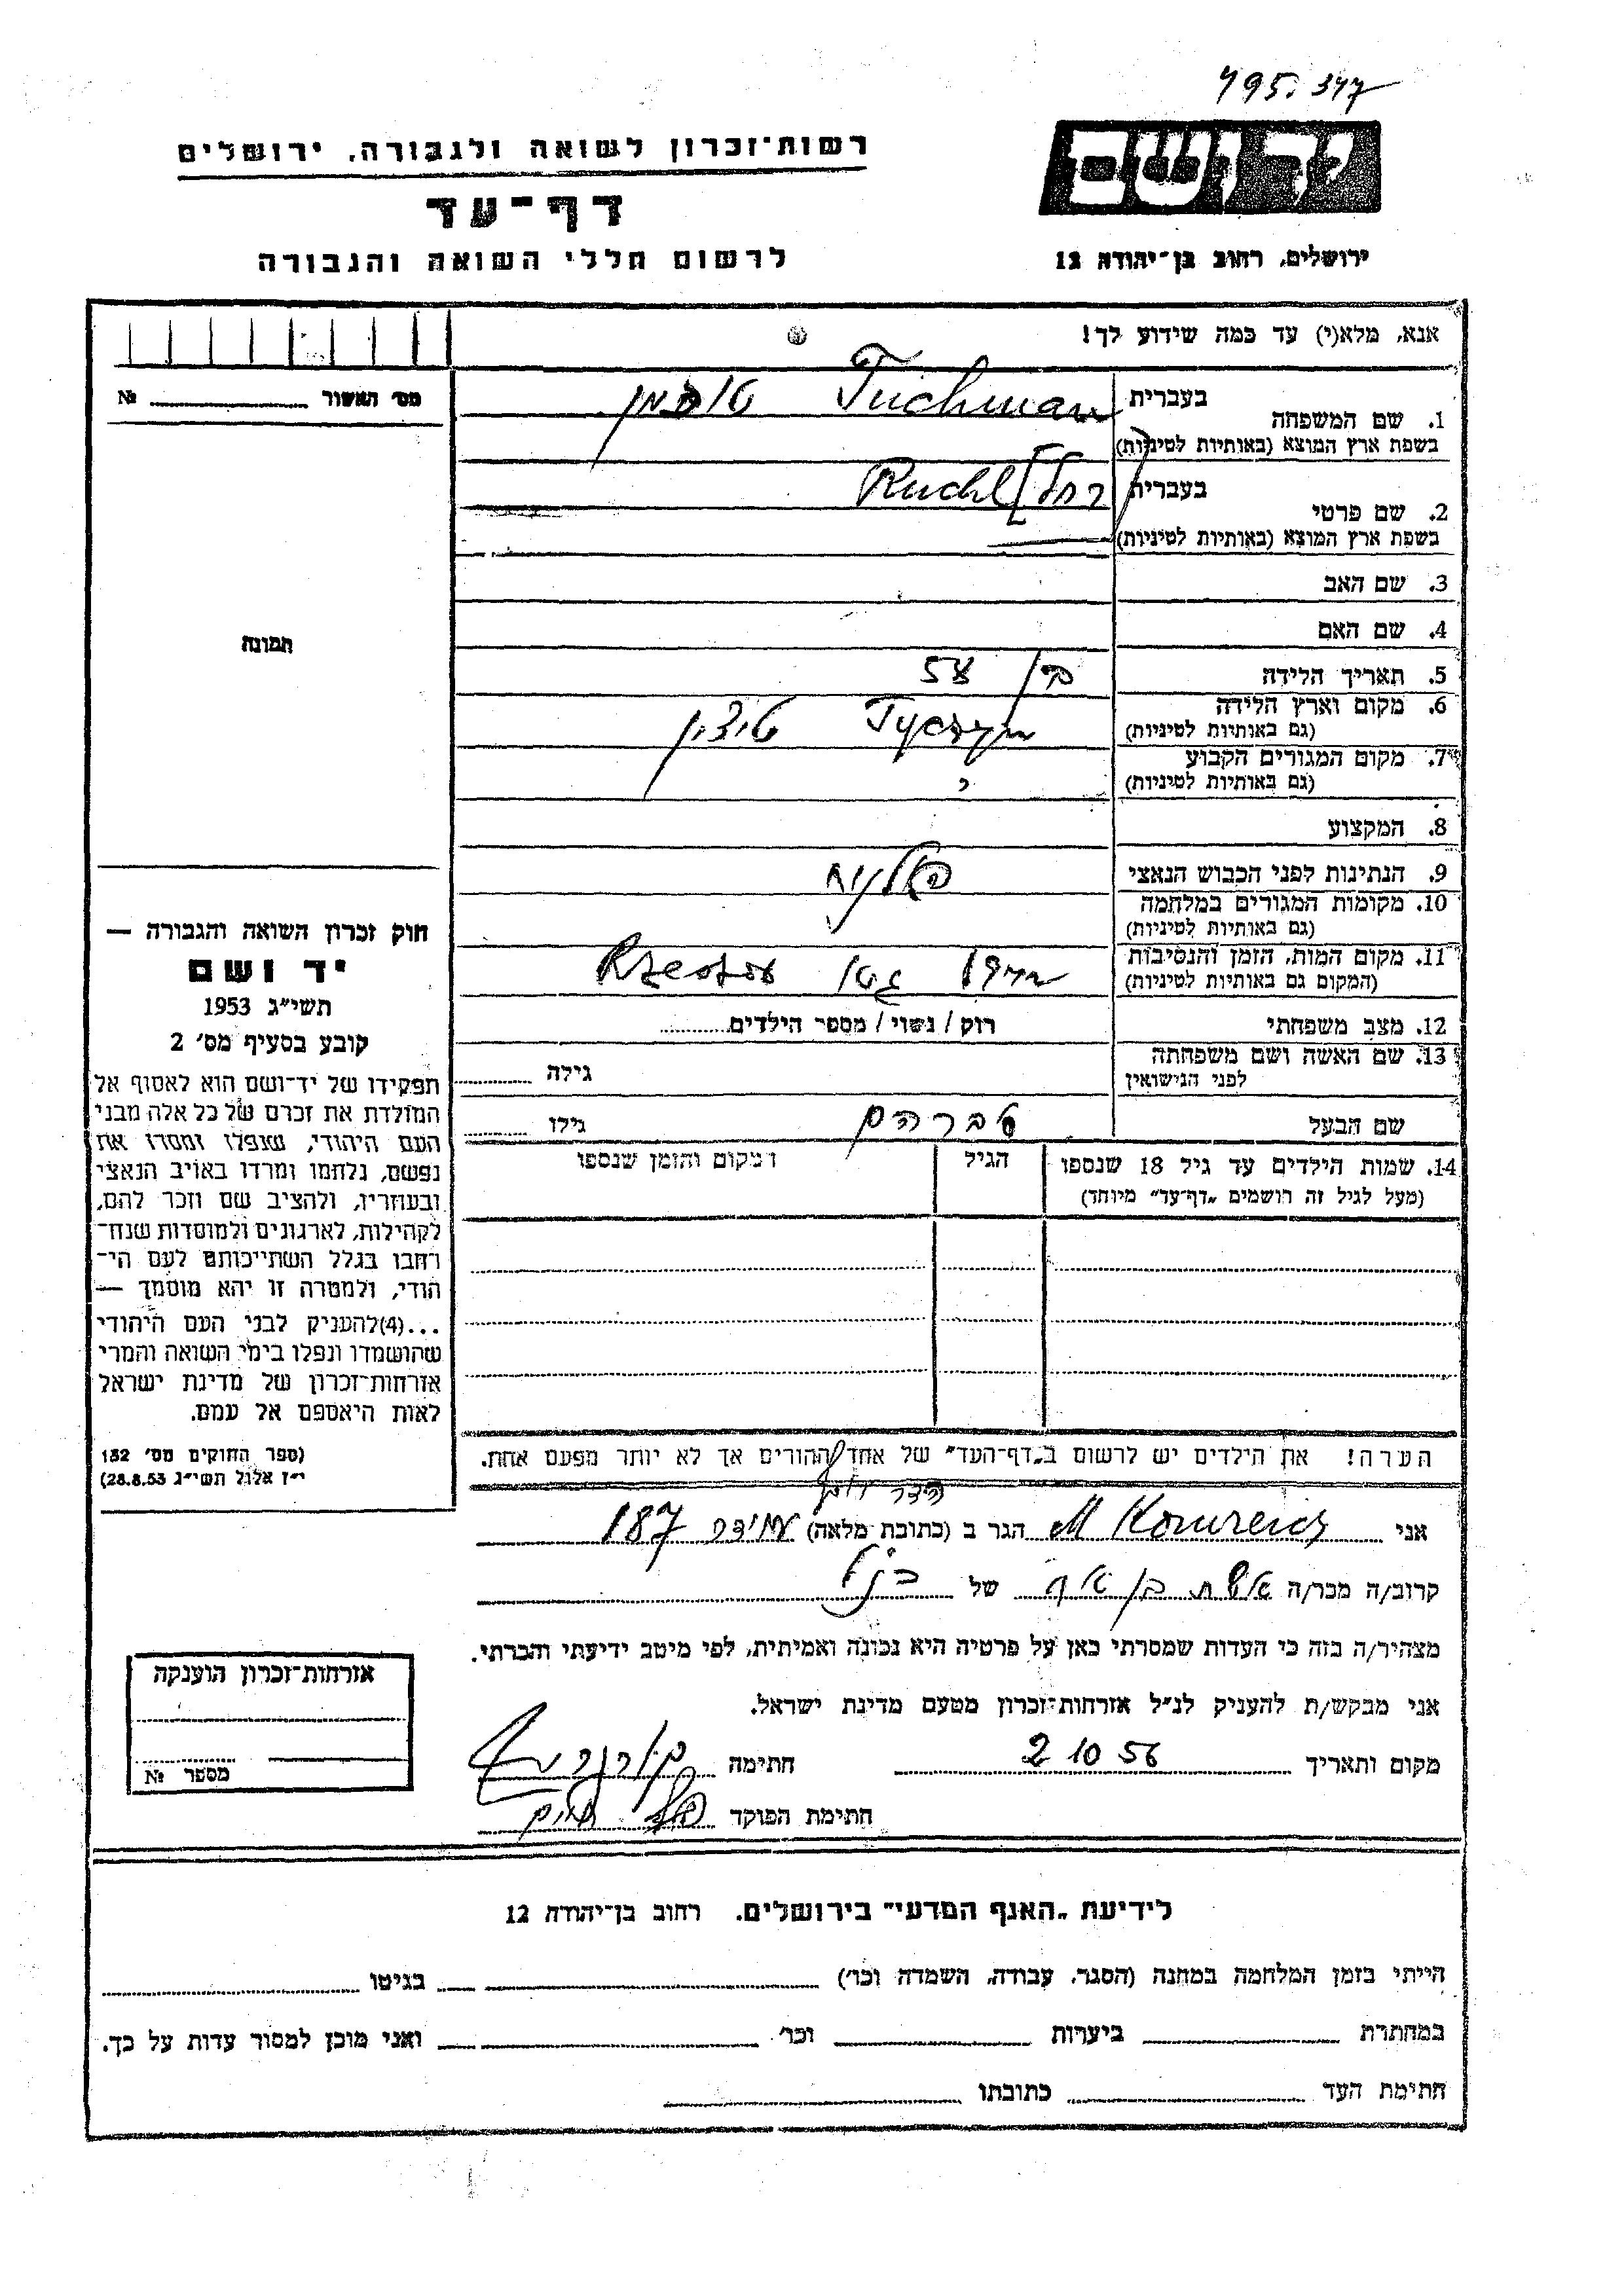 495.347
ידושם
רשות־זכרון לשואה ולגבורה, ירושלים
דף־עד
לרשום חללי השואה והגבורה
ירושלים, רחוב בן־יהודה 12
אנא, מלא(י) עד כמה שידוע לך!
מס' האשור № 
1. שם המשפחה בעברית Tuchman טוכמן
בשפת ארץ המוצא (באותיות לטיניות)
2. שם פרטי בעברית רחל Ruchl
בשפת ארץ המוצא (באותיות לטיניות)
3. שם האב
4. שם האם
תמונה
5. תאריך הלידה
6. מקום וארץ הלידה Tyczyn טיצין
(גם באותיות לטיניות)
7. מקום המגורים הקבוע
(גם באותיות לטיניות)
8. המקצוע
9. הנתינות לפני הכבוש הנאצי פולניה
10. מקומות המגורים במלחמה
(גם באותיות לטיניות)
11. מקום המות, הזמן והנסיבות 1942 גטו Rzeszow
(המקום גם באותיות לטיניות)
12. מצב משפחתי רוק / נשוי / מספר הילדים
13. שם האשה ושם משפחתה גילה
לפני הנישואין
שם הבעל אברהם גילו
14. שמות הילדים עד גיל 18 שנספו הגיל המקום והזמן שנספו
(מעל לגיל זה רושמים „דף־עד" מיוחד)
חוק זכרון השואה והגבורה —
יד ושם
תשי"ג 1953
קובע בסעיף מס' 2
תפקידו של יד־ושם הוא לאסוף אל
המולדת את זכרם של כל אלה מבני
העם היהודי, שנפלו ומסרו את
נפשם, נלחמו ומרדו באויב הנאצי
ובעוזריו, ולהציב שם וזכר להם,
לקהילות, לארגונים ולמוסדות שנח־
רחבו בגלל השתייכותם לעם הי־
הודי, ולמטרה זו יהא מוסמך —
...(4)להעניק לבני העם היהודי
שהושמדו ונפלו בימי השואה והמרי
אזרחות־זכרון של מדינת ישראל
לאות היאספם אל עמם.
(ספר החוקים מס' 132
י"ז אלול תשי"ג 28.8.53)
הערה! את הילדים יש לרשום ב„דף־העד" של אחד ההורים אך לא יותר מפעם אחת.
אני M Komreich הגר ב (כתובת מלאה) עמידר 187
קרוב/ה מכר/ה אשת בן אח של הנ"ל
מצהיר/ה בזה כי העדות שמסרתי כאן על פרטיה היא נכונה ואמיתית, לפי מיטב ידיעתי והכרתי.
אני מבקש/ת להעניק לנ"ל אזרחות־זכרון מטעם מדינת ישראל.
מקום ותאריך 2 10 56 חתימה
חתימת הפוקד
אזרחות־זכרון הוענקה
מספר №
לידיעת „האגף המדעי" בירושלים. רחוב בן־יהודה 12
הייתי בזמן המלחמה במחנה (הסגר, עבודה, השמדה וכו') בגיטו
במחתרת ביערות וכו' ואני מוכן למסור עדות על כך.
חתימת העד כתובתו